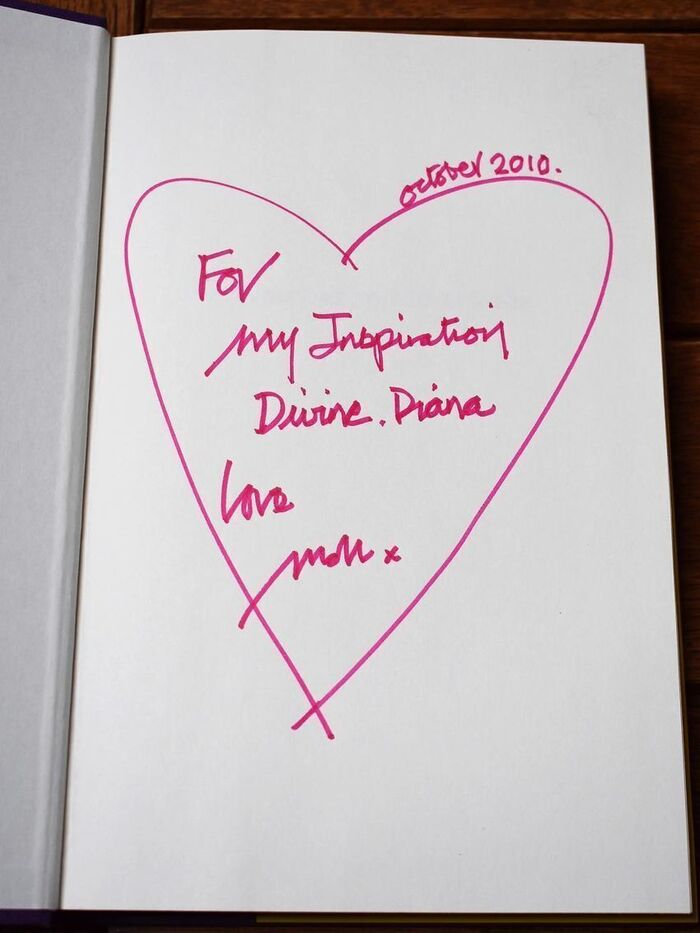 October 2010.
For
my Inspiration
Divine. Diana
Love
x